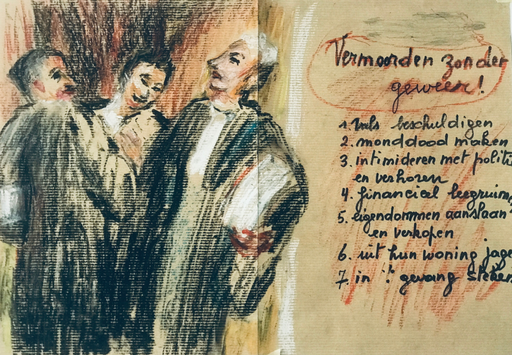 Vermoorden zonder
geweer!
1. vals beschuldigen
2. monddood maken
3. intimideren met politi
en verhoren
4. financieel leegruim
5. eigendommen aanslaan
en verkopen
6. uit hun woning jage
7. in 't gevang steken